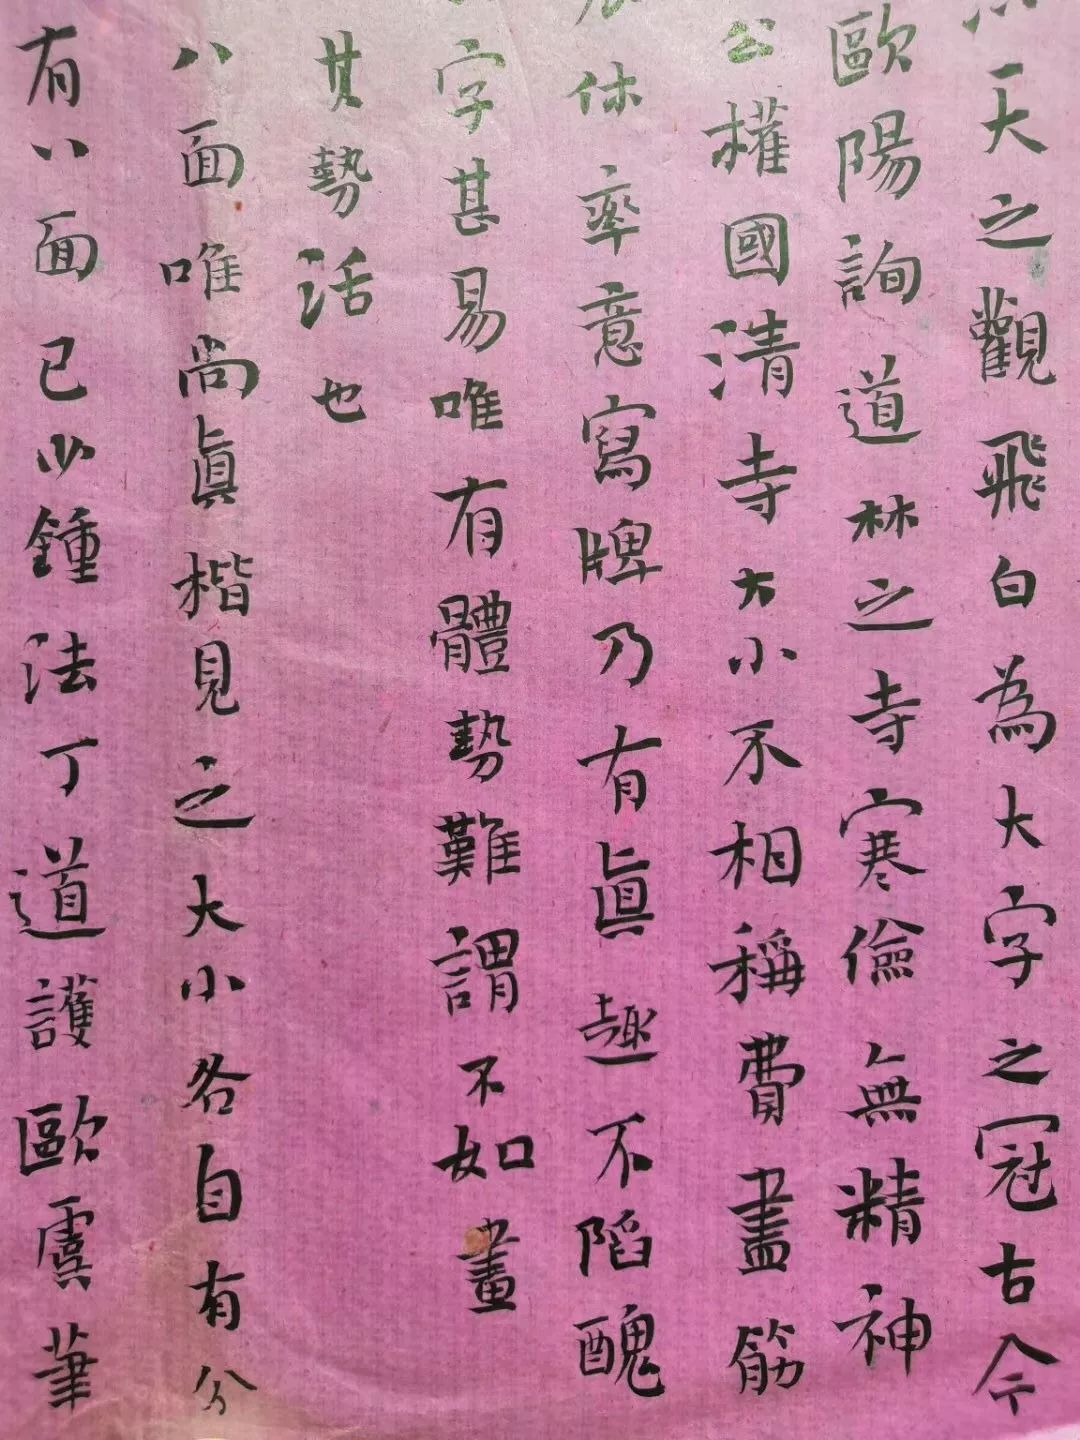 大之觀飛白為大字之冠古今
歐陽詢道林之寺寒儉無精神
公權國清寺大小不相稱費盡筋
休率意寫牌乃有眞趣不陷醜
字甚易唯有體勢難謂不如畫
其勢活也
八面唯尚眞楷見之大小各自有分
有八面已少鍾法丁道護歐虞筆